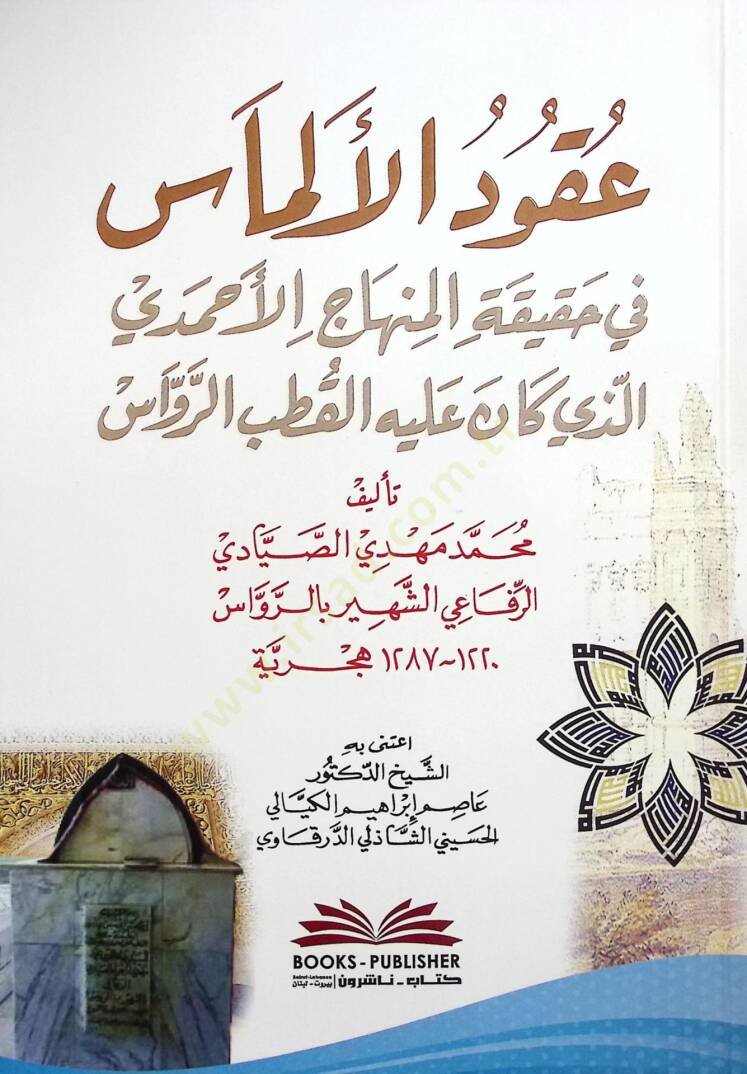 عُقُودُ الأَلمَاس
في حَقِيقَةِ المِنهَاجِ الأَحمَدَيْ
الّذي كَانَ عَليه القُطب الرَّوَّاسْ
تأليفْ
محُمَّد مَهْدِيْ الصَّيَّادي
الرِّفَاعي الشَّهِير بالرَّوَّاسْ
١٢٢٠~١٢٨٧ هجْريَّة
اعتنى بِهِ
الشَّيخ الدّكتُور
عَاصِم إِبْراهيم الكيَّالي
الحسَيني الشَّاذلي الدَّرقاوي
BOOKS - PUBLISHER
كتاب - ناشرون
Beirut-Lebanon
بيروت - لبنان